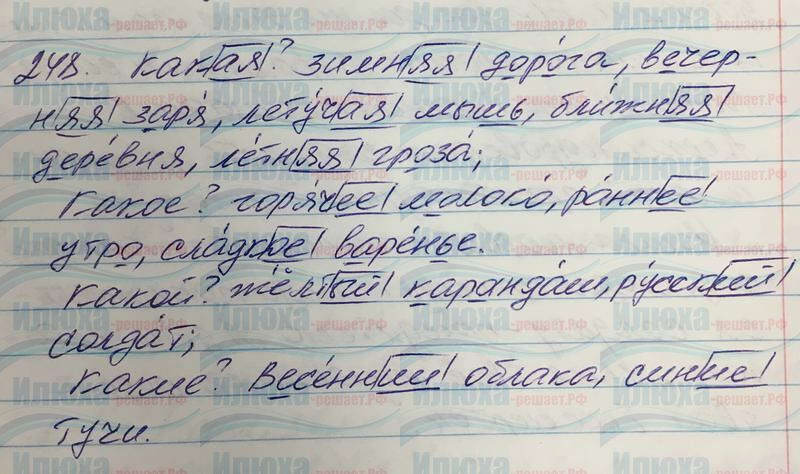 248. Какая? зимняя дорога, вечер-
няя заря, летучая мышь, ближняя
деревня, летняя гроза;
Какое? горячее молоко, раннее
утро, сладкое варенье.
Какой? жёлтый карандаш, русский
солдат;
Какие? Весенние облака, синие
тучи.